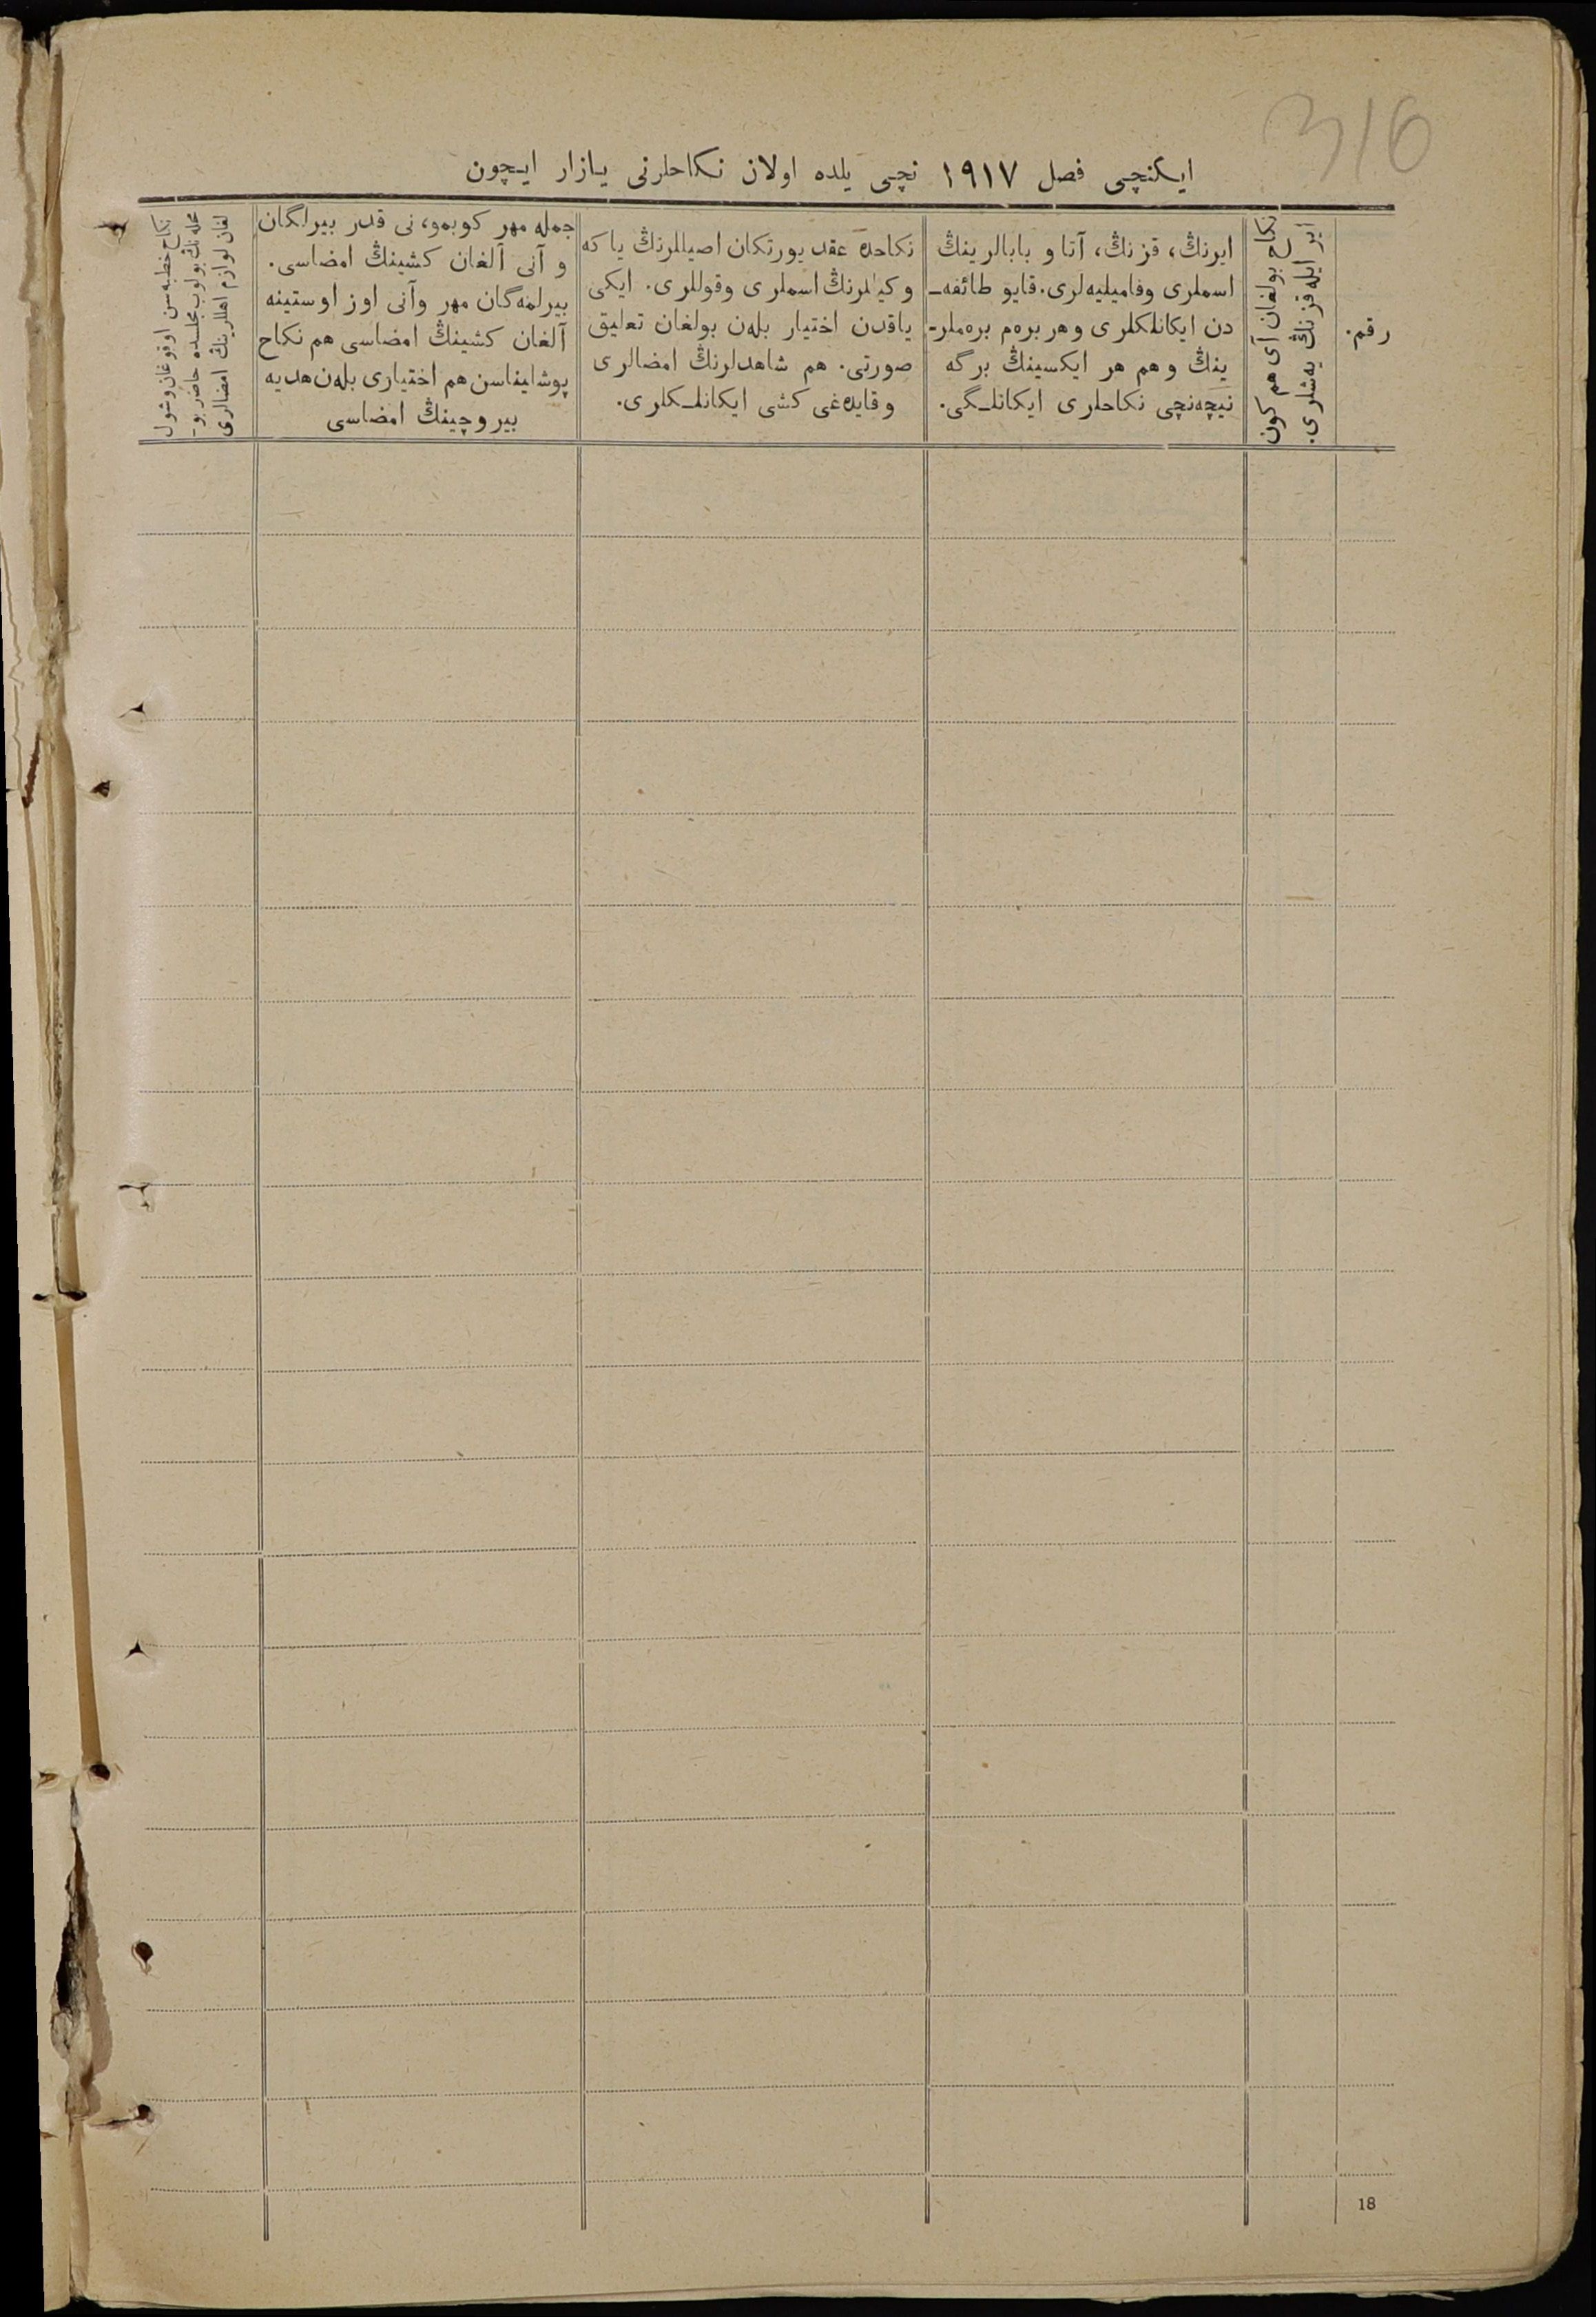 316
ایکنچی فصل ۱۹۱۷ نچی یلده اولان نکاحلرنی یازار ایچون
رقم.
ایر ایله قزنڭ یەشلری.
نکاح بولغان آی هم کون
ایرنڭ، قزنڭ، آتا و بابالرینڭ
اسملری وفامیلیەلری. قایو طائفه‌ـ
دن ایکانلکلری و هر بره‌م بره‌ملر-
ینڭ و هم هر ایکسینڭ برگه
نیچەنچی نکاحلری ایکانلـگی.
نکاحده عقد یورتکان اصیللرنڭ یا که
وکیللرنڭ اسملری وقوللری. ایکی
یاقدن اختیار بلەن بولغان تعلیق
صورتی. هم شاهدلرنڭ امضالری
و قایدەغی کشی ایکانلـکلری.
جمله مهر کوبمو، نی قدر بیرلگان
و آنی آلغان کشینڭ امضاسی.
بیرلمەگان مهر وآنی اوز اوستینه
آلغان کشینڭ امضاسی هم نکاح
پوشلیناسن هم اختیاری بلەن هدیه
بیروچینڭ امضاسی
نکاح خطبەسن اوقوغان وشول
محلەنڭ بولوب مجلسده حاضر بو-
لغان لوازم اهللرینڭ امضالری
18